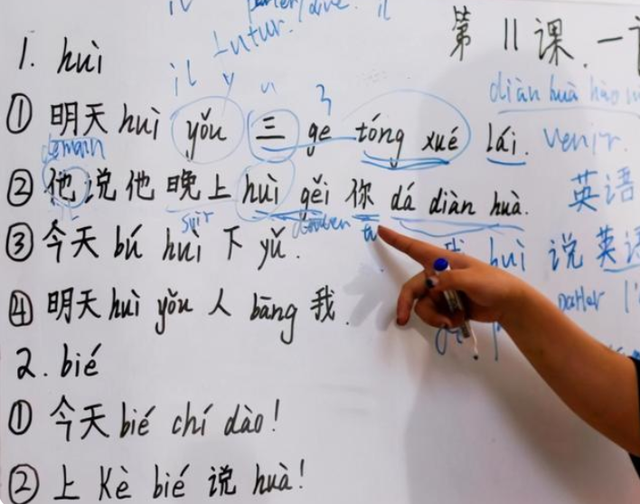 il parler
futur.
il y
第 11 课. 一
1. huì
diàn huà hào
① 明天 huì yǒu 三 ge tóng xué lái. venir.
demain
② 他说他晚上 huì gěi 你 dá diàn huà. 英语
soir tu
③ 今天 bú huì 下 yǔ. huì 说 英语
④ 明天 huì yǒu 人 bāng 我. parler l'
2. bié
① 今天 bié chí dào!
② 上 Kè bié 说 huà!